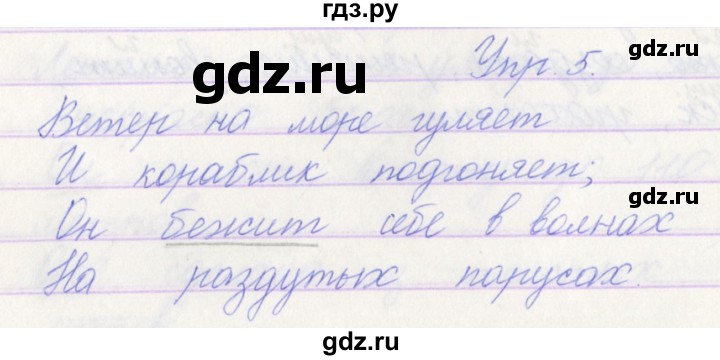 гдз.ру
gdz.ru
gdz.ru
Упр. 5.
Ветер на море гуляет
И кораблик подгоняет;
gdz.ru
Он бежит себе в волнах
На раздутых парусах.
gdz.ru